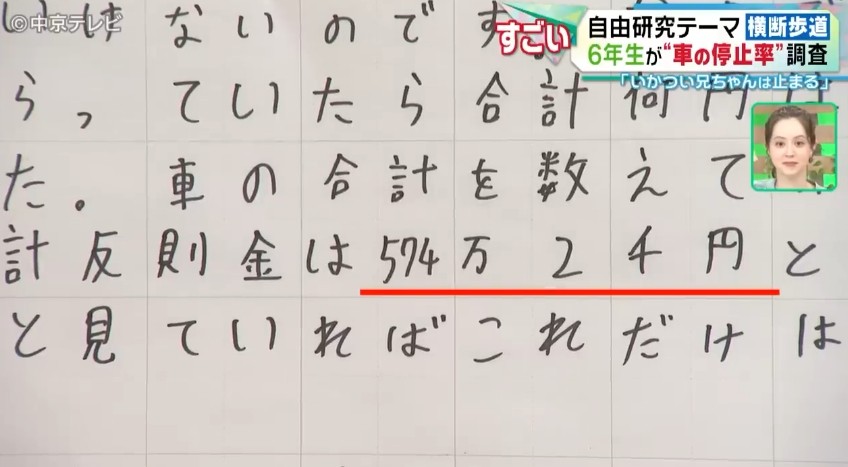 ©中京テレビ
すごい
自由研究テーマ 横断歩道
6年生が“車の停止率”調査
「いかつい兄ちゃんは止まる」
けないので
らっていたら合計何円
た。車の合計を数えて
計反則金は574万2千円と
と見ていればこれだけは